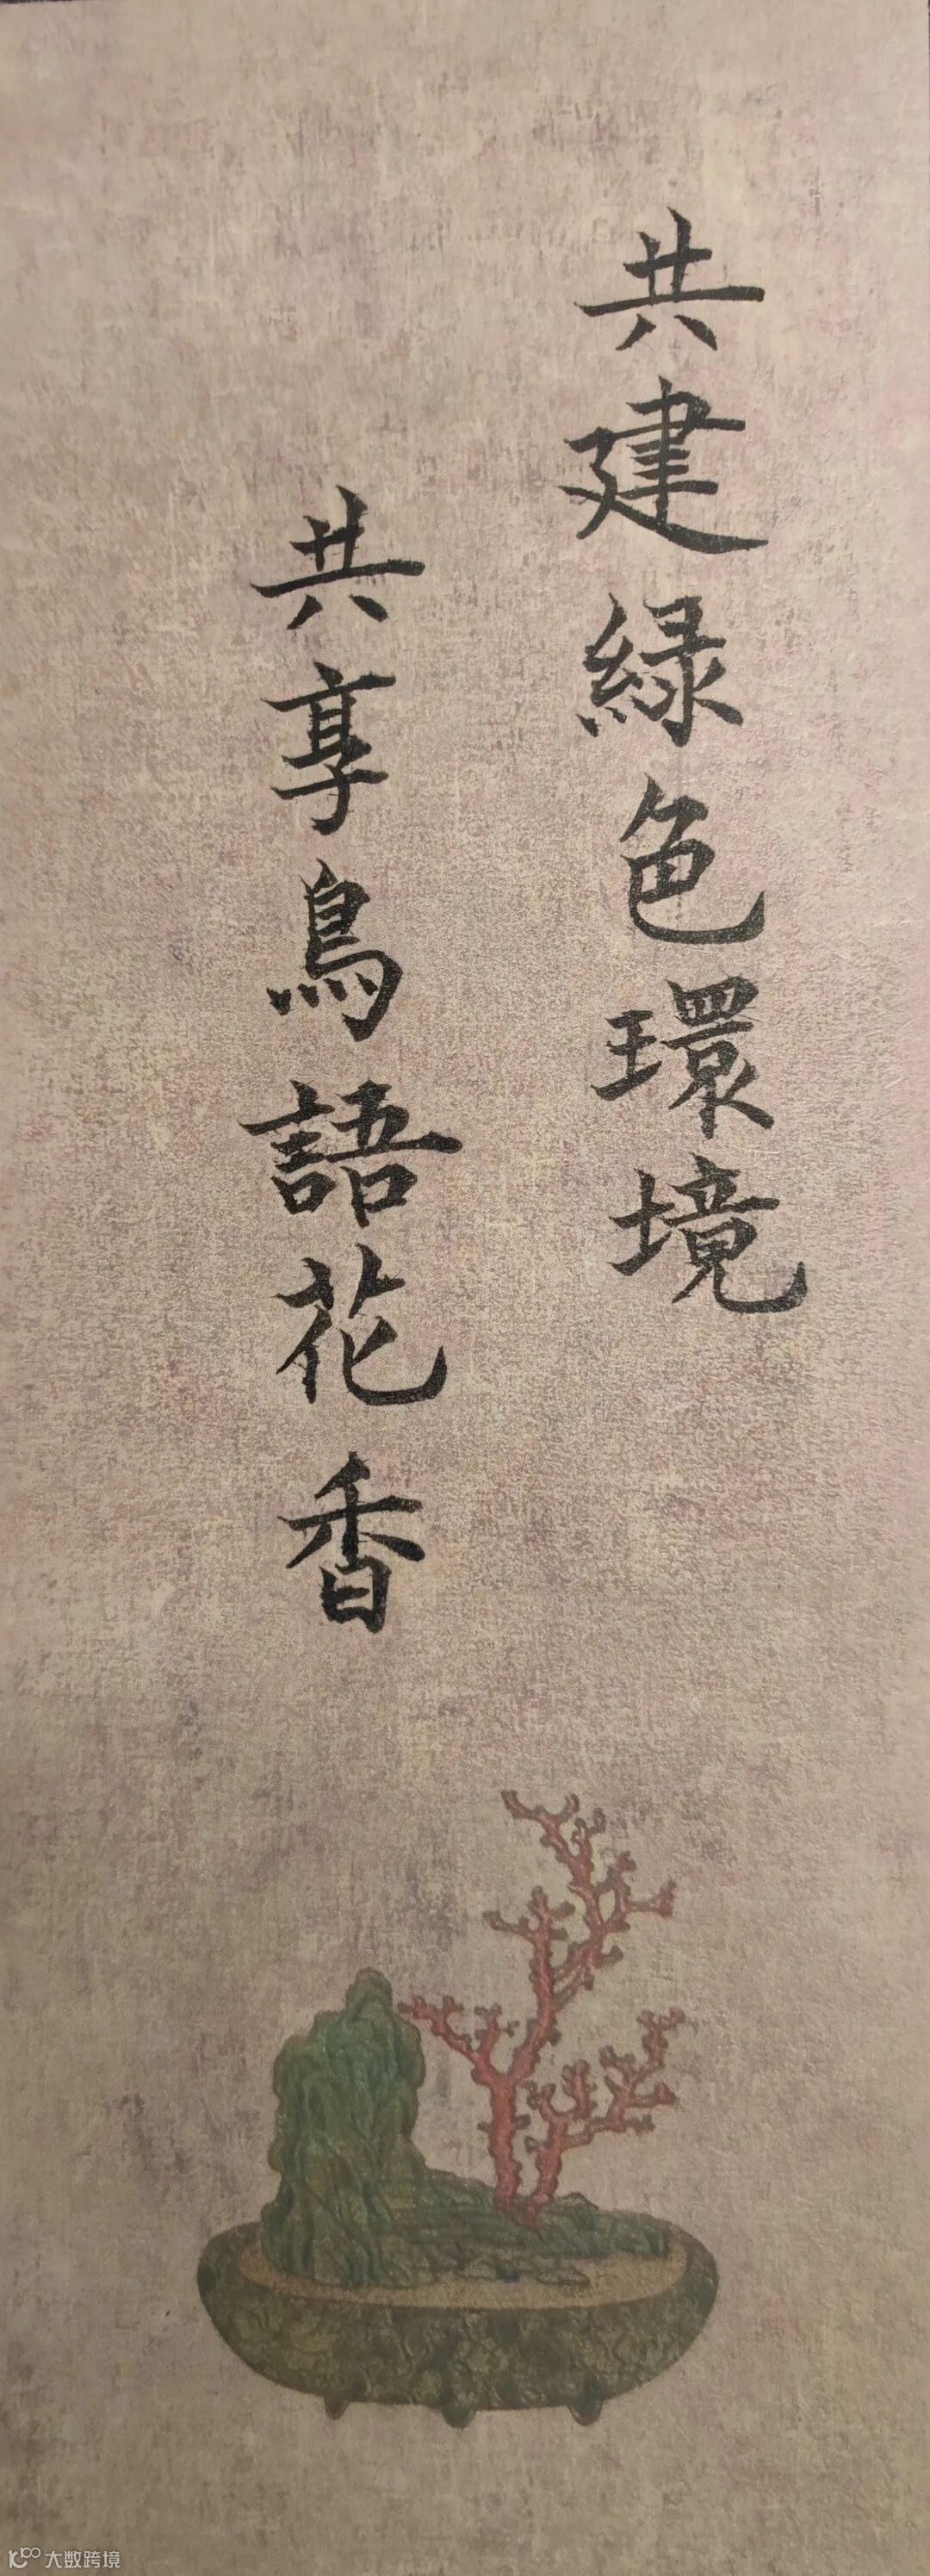 共建緑色環境
共享鳥語花香
大数跨境